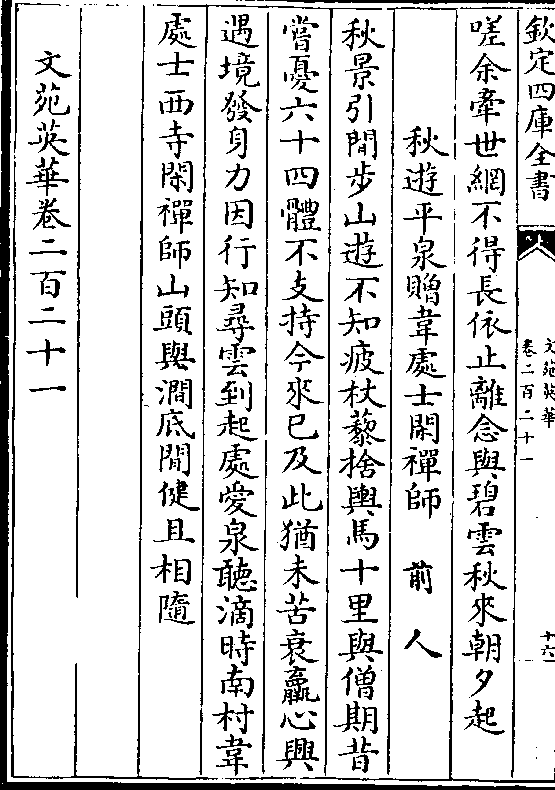 欽定四庫全書
文苑英華
卷二百二十一
十六
嗟余牽世網不得長依止離念與碧雲秋來朝夕起
秋遊平泉贈韋處士閑禪師　前人
秋景引閒步山遊不知疲杖藜捨輿馬十里與僧期昔
嘗憂六十四體不支持今來已及此猶未苦衰羸心興
遇境發身力因行知尋雲到起處愛泉聽滴時南村韋
處士西寺閑禪師山頭與澗底閒健且相隨
文苑英華卷二百二十一